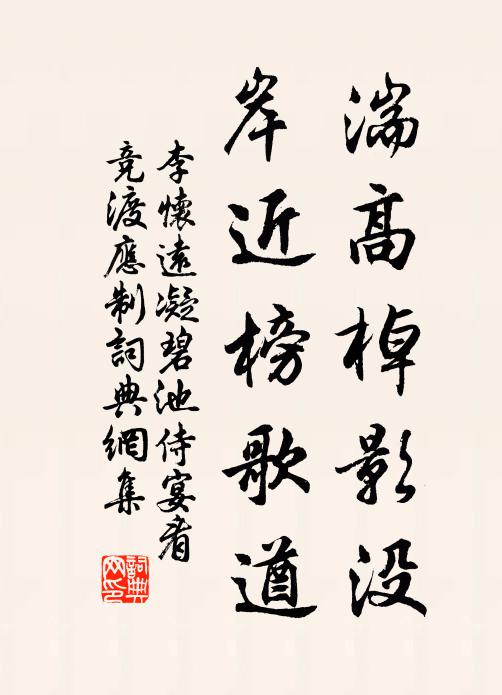 湍高棹影没
岸近榜歌遒
李懷遠凝碧池侍宴看
竞渡應制詞典網集
詞典網印